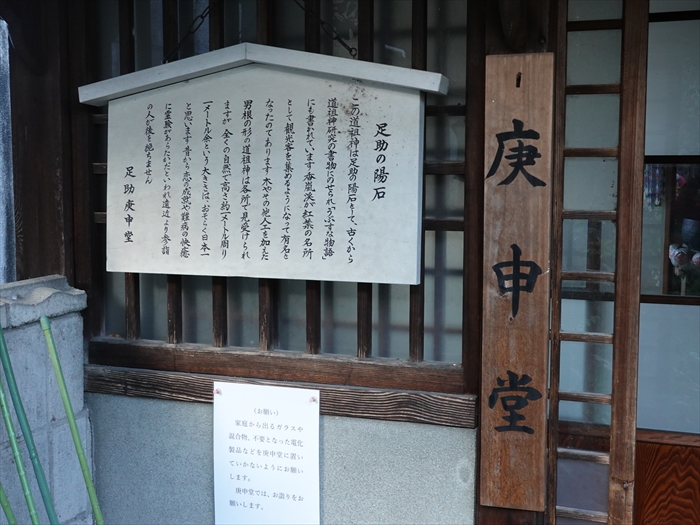 足助の陽石
この道祖神は足助の陽石として、古くから
道祖神研究の書物にのせられ「うぶすな物語」
にも書かれています 香嵐渓が紅葉の名所
として観光客を集めるようになって有名と
なったのであります 木やその他人工を加えた
男根の形の道祖神は各所で見受けられ
ますが 全くの自然で高さ約一メートル周り
一メートル余という大きさは、おそらく日本一
と思います 昔から恋の成就や難病の快癒
に霊験があらたかだといわれ遠近より参詣
の人が後を絶ちません
足助庚申堂
庚申堂
(お願い)
家庭から出るガラスや
混合物、不要となった電化
製品などを庚申堂に置い
ていかないようにお願い
します。
庚申堂では、お詣りをお
願いします。